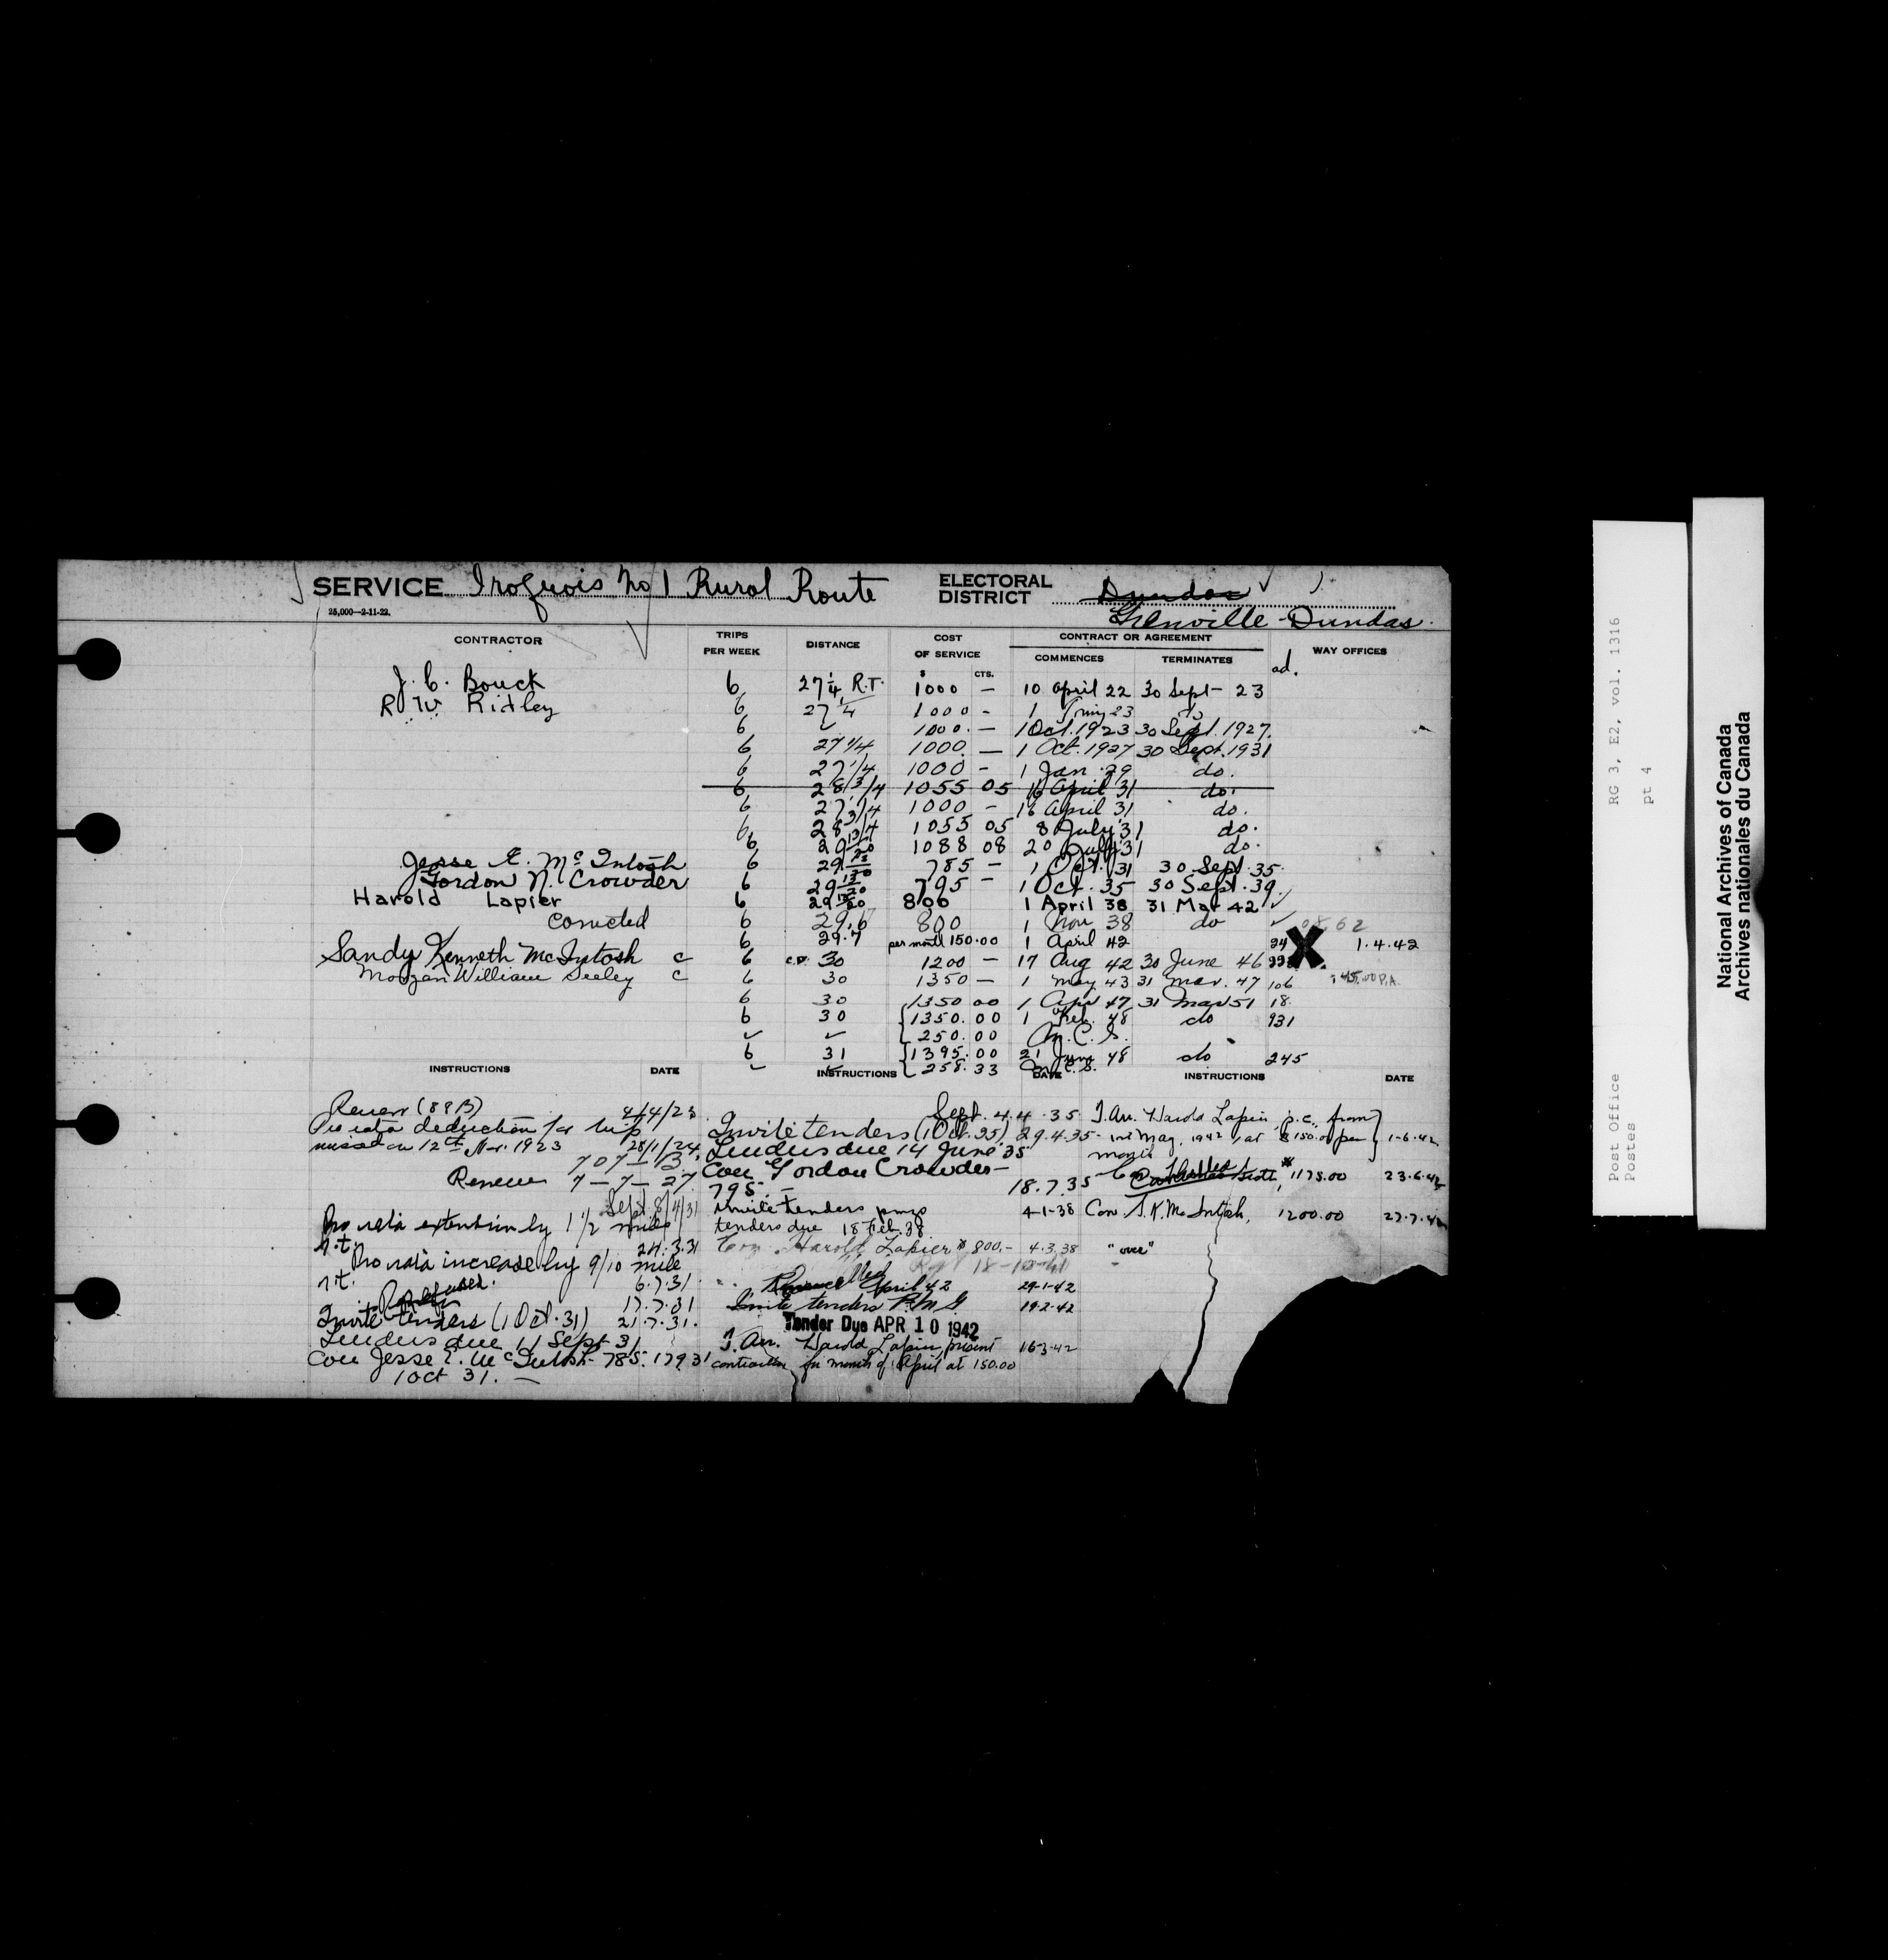 SERVICE Iroquois No 1 Rural Route ELECTORAL DISTRICT Dundas
25,000-2-11-22. Grenville-Dundas.
CONTRACTOR TRIPS PER WEEK DISTANCE COST OF SERVICE CONTRACT OR AGREEMENT COMMENCES TERMINATES WAY OFFICES
$ CTS. ad.
J. C. Bouck 6 27 1/4 R.T. 1000 — 10 April 22 30 Sept - 23
R W Ridley 6 27 1/4 1000 - 1 23 do
6 ✓ 1000. — 1 Oct. 1923 30 Sept. 1927
6 27 1/4 1000. — 1 Oct. 1927 30 Sept. 1931
6 27 1/4 1000 - 1 Jan. 29 do.
6 28 3/4 1055 05 16 April 31 do.
6 27 1/4 1000 - 16 April 31 do.
6 28 3/4 1055 05 8 July 31 do.
6 29 13/20 1088 08 20 July 31 do.
Jesse E. McIntosh 6 29 13/20 785 — 1 Oct. 31 30 Sept. 35.
Gordon N. Crowder 6 29 13/20 795 — 1 Oct. 35 30 Sept. 39
Harold Lapier 6 29 13/20 800 1 April 38 31 Mar 42 ✓
Corrected 6 29.6 800 1 Nov 38 do ✓ 0862
6 29.7 per month 150.00 1 April 42 24 X 1.4.42
Sandy Kenneth McIntosh c 6 30 1200 — 17 Aug 42 30 June 46
Morgan William Seeley c 6 30 1350 — 1 May 43 31 Mar. 47 106 45.00 P.A.
6 30 1350 00 1 Apr 47 31 Mar 51 18.
6 30 1350.00 1 Feb. 48 do 931
✓ ✓ 250.00 M.C.S.
6 31 1395.00 21 June 48 do 245
✓ ✓ 258.33 M.C.S.
INSTRUCTIONS DATE INSTRUCTIONS DATE INSTRUCTIONS DATE
Renew (88B) 4/4/23
Pro rata deduction for trip
missed on 12th Nov. 1923 28/1/24
707-13
Renew 7-7-27
Sept. 8/4/31
Pro rata extension by 1 1/2 miles
r.t. 24.3.31
Pro rata increase by 9/10 mile
r.t. 6.7.31
17.7.31
Invite tenders (1 Oct. 31) 21.7.31.
Tenders due 11 Sept 31
Con Jesse E. McIntosh - 785. 17.9.31
1 Oct 31. —
Sept. 4.4.35
Invite tenders (1 Oct. 35) 29.4.35
Tenders due 14 June 35
Con Gordon Crowder —
795. — 18.7.35
Invite tenders 4-1-38
tenders due 18 Feb. 38
Con. Harold Lapier $800.- 4.3.38
18-12-41
April 42 29-1-42
Invite tenders P.M.G. 19.2.42
Tender Due APR 10 1942
T. Arr. Harold Lapier, present 16-3-42
contractor for month of April at 150.00
T. Arr. Harold Lapier, p.c., from
1st May, 1942, at $150.00 per 1-6-42
month
Cancelled $1175.00 23.6.42
Con S. K. McIntosh, 1200.00 27.7.42
"over"
Post Office RG 3, E2, vol. 1316
Postes pt 4
National Archives of Canada
Archives nationales du Canada